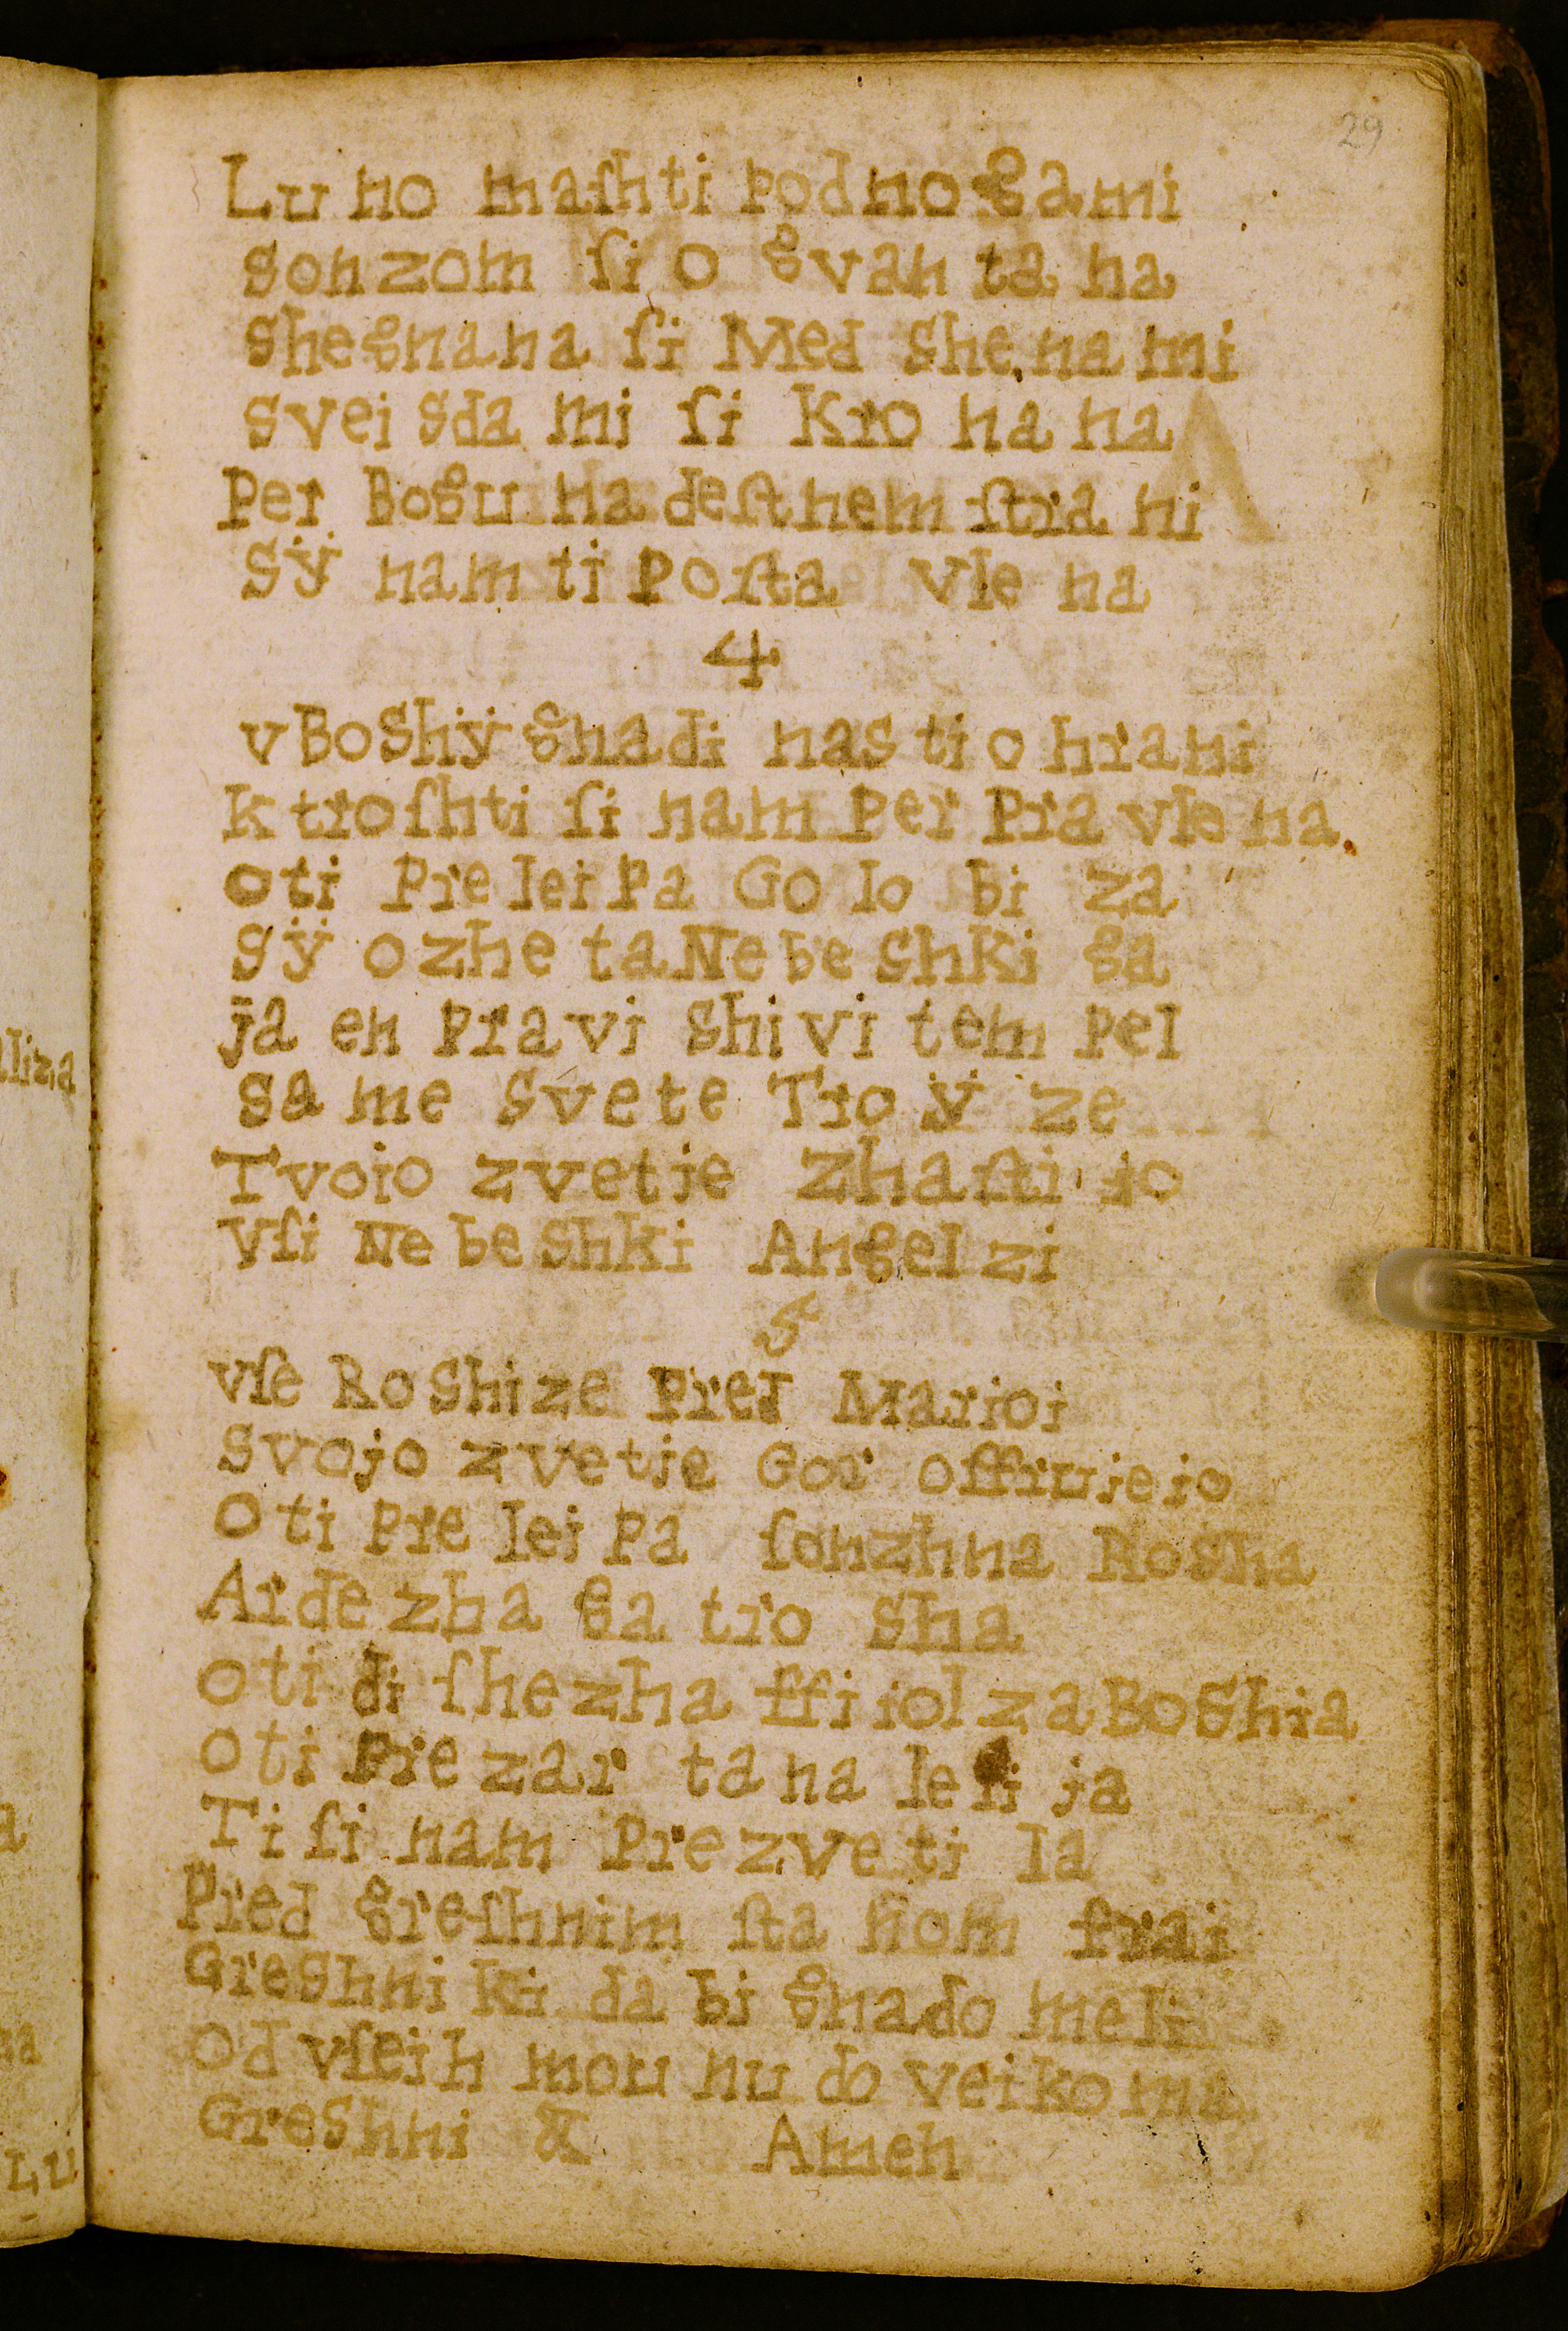 29
Lu no maſhti podnogami
sonzom ſi o gvan ta na
shegnana ſi Med shenami
svei sda mi ſi Kro na na
Per Bogu na deſtnem ſtra ni
Sÿ nam ti Poſta vle na
4
v BoShÿ gnadi nas ti o hrani
K troſhti ſi nam Per Pra vle na.
o ti Pre lei Pa Go lo bi za
Sÿ o zhe ta Ne be shki ga
ja en Pra vi shi vi tem pel
sa me svete Tro ÿ ze
Tvoio zvetje zhaſti jo
Vſi Ne be shki Angel zi
5
vſe Ro shi ze Pred Marioi
Svojo zvetje Gor offrujejo
O ti Pre lei Pa ſonzhna Rosha
Arde zha ga tro sha
o ti di ſhe zha ffi jol za BoShia
o ti Pre zar ta na le li ja
Ti ſi nam Pre zve ti la
Pred greſhnim ſta nom frai
Greshni ki da bi gnado meli
Od vſeih mou nu do veiko ma
Greshni & Amen
liza
Lu